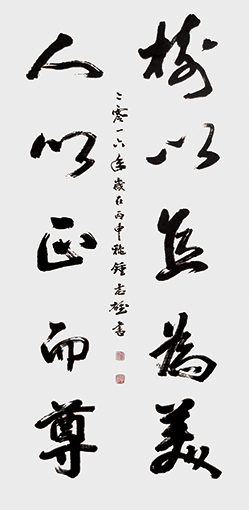 樹以直為美
人以正而尊
二零一六年歲在丙申秋鍾志雄書